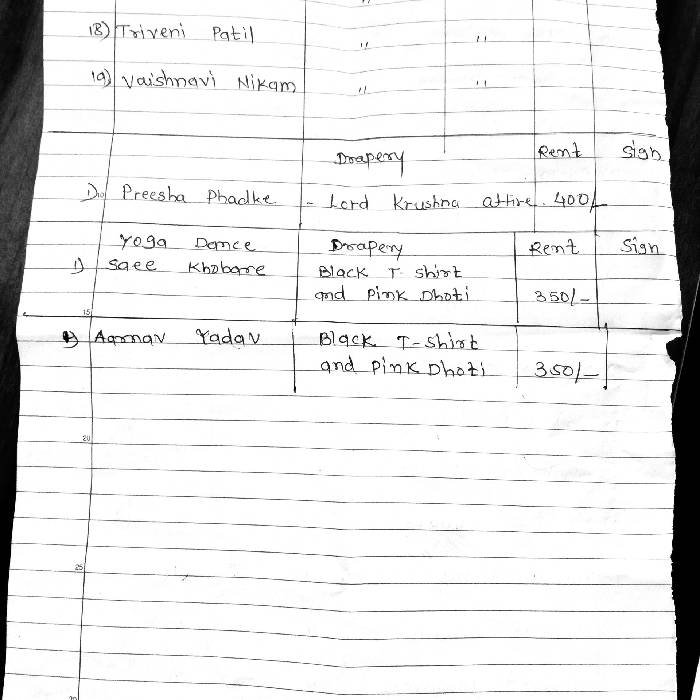 18) Triveni Patil " "
19) Vaishnavi Nikam " "
Drapery Rent Sign
1) Preesha Phadke - Lord Krushna attire. 400/-
Yoga Dance Drapery Rent Sign
1) Saee Khobare Black T-Shirt
and Pink Dhoti 350/-
15
Aarnav Yadav Black T-Shirt
and Pink Dhoti 350/-
20
25